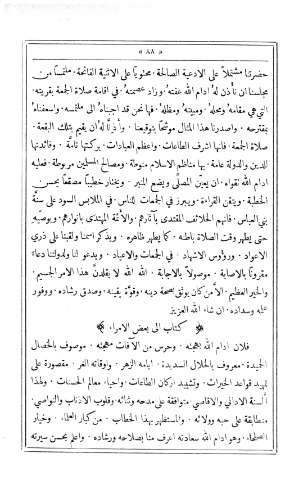 « ٨٨ »
حضرتنا مشتملاً على الادعية الصالحة . محتوياً على الاثنية الفائحة . ملتمساً من
مجلسنا ان نأذن له ادام الله عفته . وزاد عصمته . فى اقامة صلاة الجمعة بقريته .
التى هى مقامه ومحله . ومبيته ومظله . فها نحن قد اجبناه الى ملتمسه . واسعفناه
بمقترحه . واصدرنا هذا المثال موشحاً بتوقيعنا . وأذنا له ان يقيم بتلك البقعة .
صلاة الجمعة . فانها اشرف الطاعات . واعظم العبادات . بركتها تامة . وفائدتها
للدين والدولة عامة . بها مناظم الاسلام منوطة . ومصالح المسلمين مربوطة . فعليه
ادام الله تقواه . ان يعين المصلّى ويضع المنبر . ويختار خطيباً مصقعاً يحسن
الخطبة . ويتقن القراءة . ويبرز فى الجمعات للناس . فى الملابس السود على سنة
بنى العباس . فانهم الخلائف المقتدى بآثارهم . والائمة المهتدى بانوارهم . ويوصيه
حتى يطهر وقت الصلاة باطنه . كما يطهر ظاهره . ويذكر اسمنا ولقبنا على ذرى
الاعواد . ورؤوس الاشهاد . فى الجمعات والاعياد . ويدعو لنا ولدولتنا دعاء
مقروناً بالاصابة . موصولاً بالاجابة . الله الله لا يقلدن هذا الامر الجسيم .
والخير العظيم . الا من كان يوثق بصحة دينه . وقوة يقينه . وصدق رشاده . ووفور
علمه وسداده . ان شاء الله العزيز
﴿ كتاب الى بعض الامراء ﴾
فلان ادام الله بهجته . وحرس من الآفات مهجته . موصوف بالخصال
الحميدة . معروف بالخلال السديدة . ايامه الزهر . واوقاته الغر . مقصورة على
تمهيد قواعد الخيرات . وتشييد اركان الطاعات . واحياء معالم الحسنات . ولهذا
ألسنة الادانى والاقاصى . متوافقة على مدحه وثنائه . وقلوب الاذناب والنواصى .
متطابقة على حبه وولائه . والمستظهر بهذا الخطاب . من كبار العلماء . وخيار
الصلحاء . وهو ادام الله سعادته اعرف منا بصلاحه ورشاده . واعلم بحسن سيرته